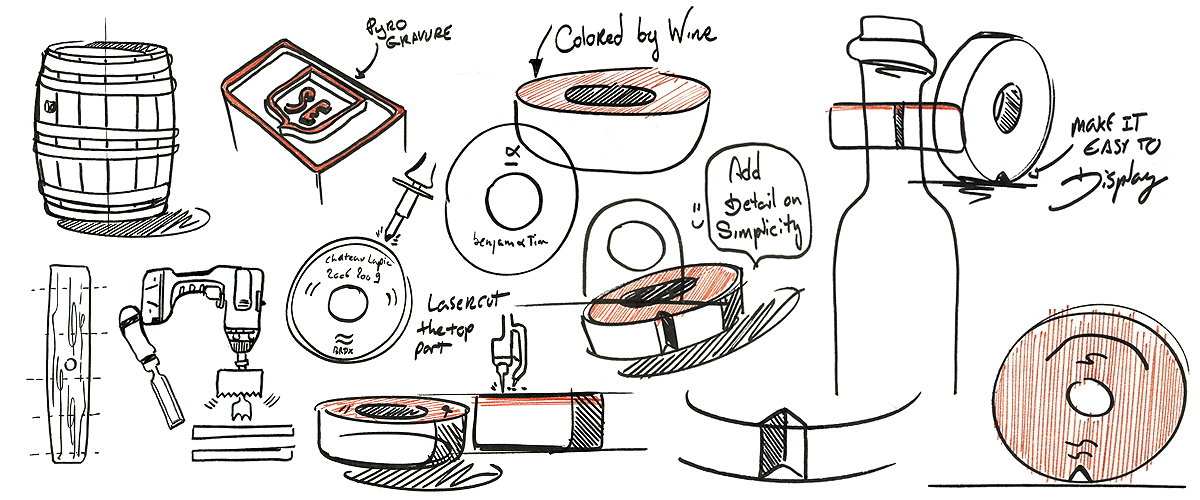 PYRO
GRAVURE
SE
Colored by Wine
benjam & Tim
chateau Lapic
2006 2009
BRDX
Add
Detail on
Simplicity
MAKE IT
EASY TO
Display
LASERCUT
the top
part